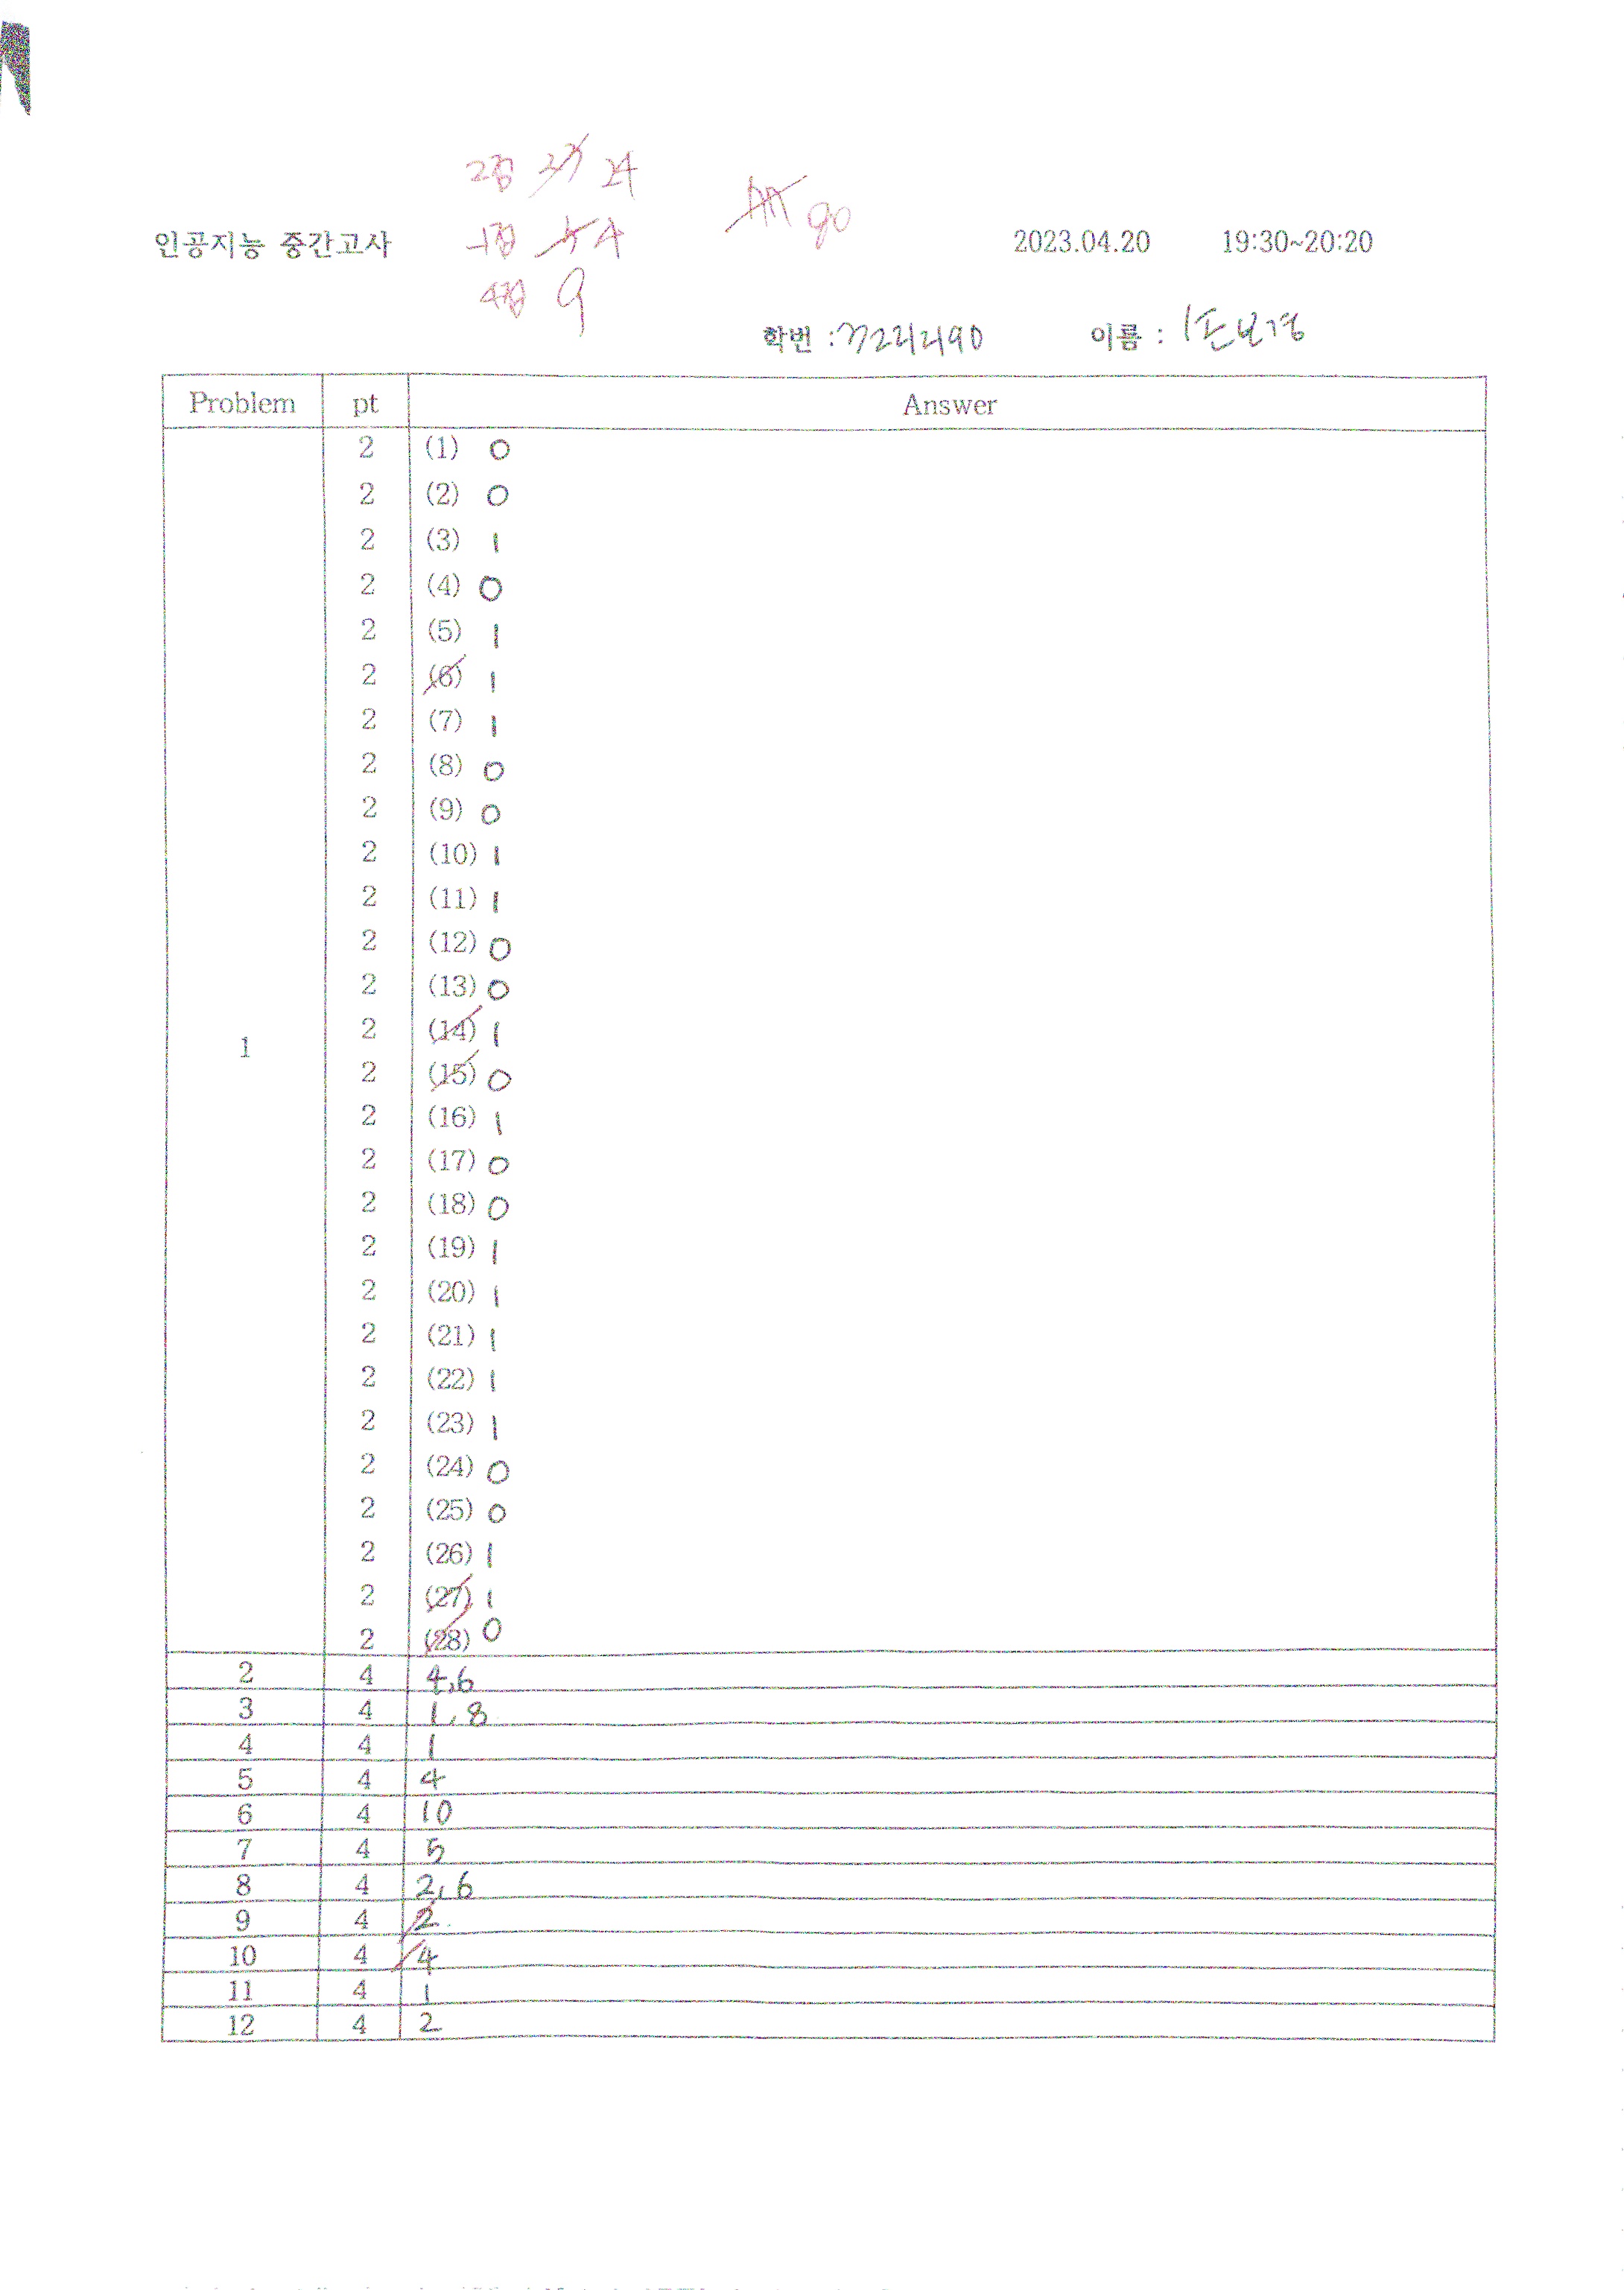 2점 24
인공지능 중간고사 -1점 4 90 2023.04.20 19:30~20:20
4점 9
학번 : 이름 :
Problem pt Answer
2 (1) 0
2 (2) 0
2 (3) 1
2 (4) 0
2 (5) 1
2 (6) 1
2 (7) 1
2 (8) 0
2 (9) 0
2 (10) 1
2 (11) 1
2 (12) 0
2 (13) 0
2 (14) 1
1
2 (15) 0
2 (16) 1
2 (17) 0
2 (18) 0
2 (19) 1
2 (20) 1
2 (21) 1
2 (22) 1
2 (23) 1
2 (24) 0
2 (25) 0
2 (26) 1
2 (27) 1
2 (28) 0
2 4 4,6
3 4 1,8
4 4 1
5 4 4
6 4 10
7 4 5
8 4 2,6
9 4 2
10 4 4
11 4 1
12 4 2